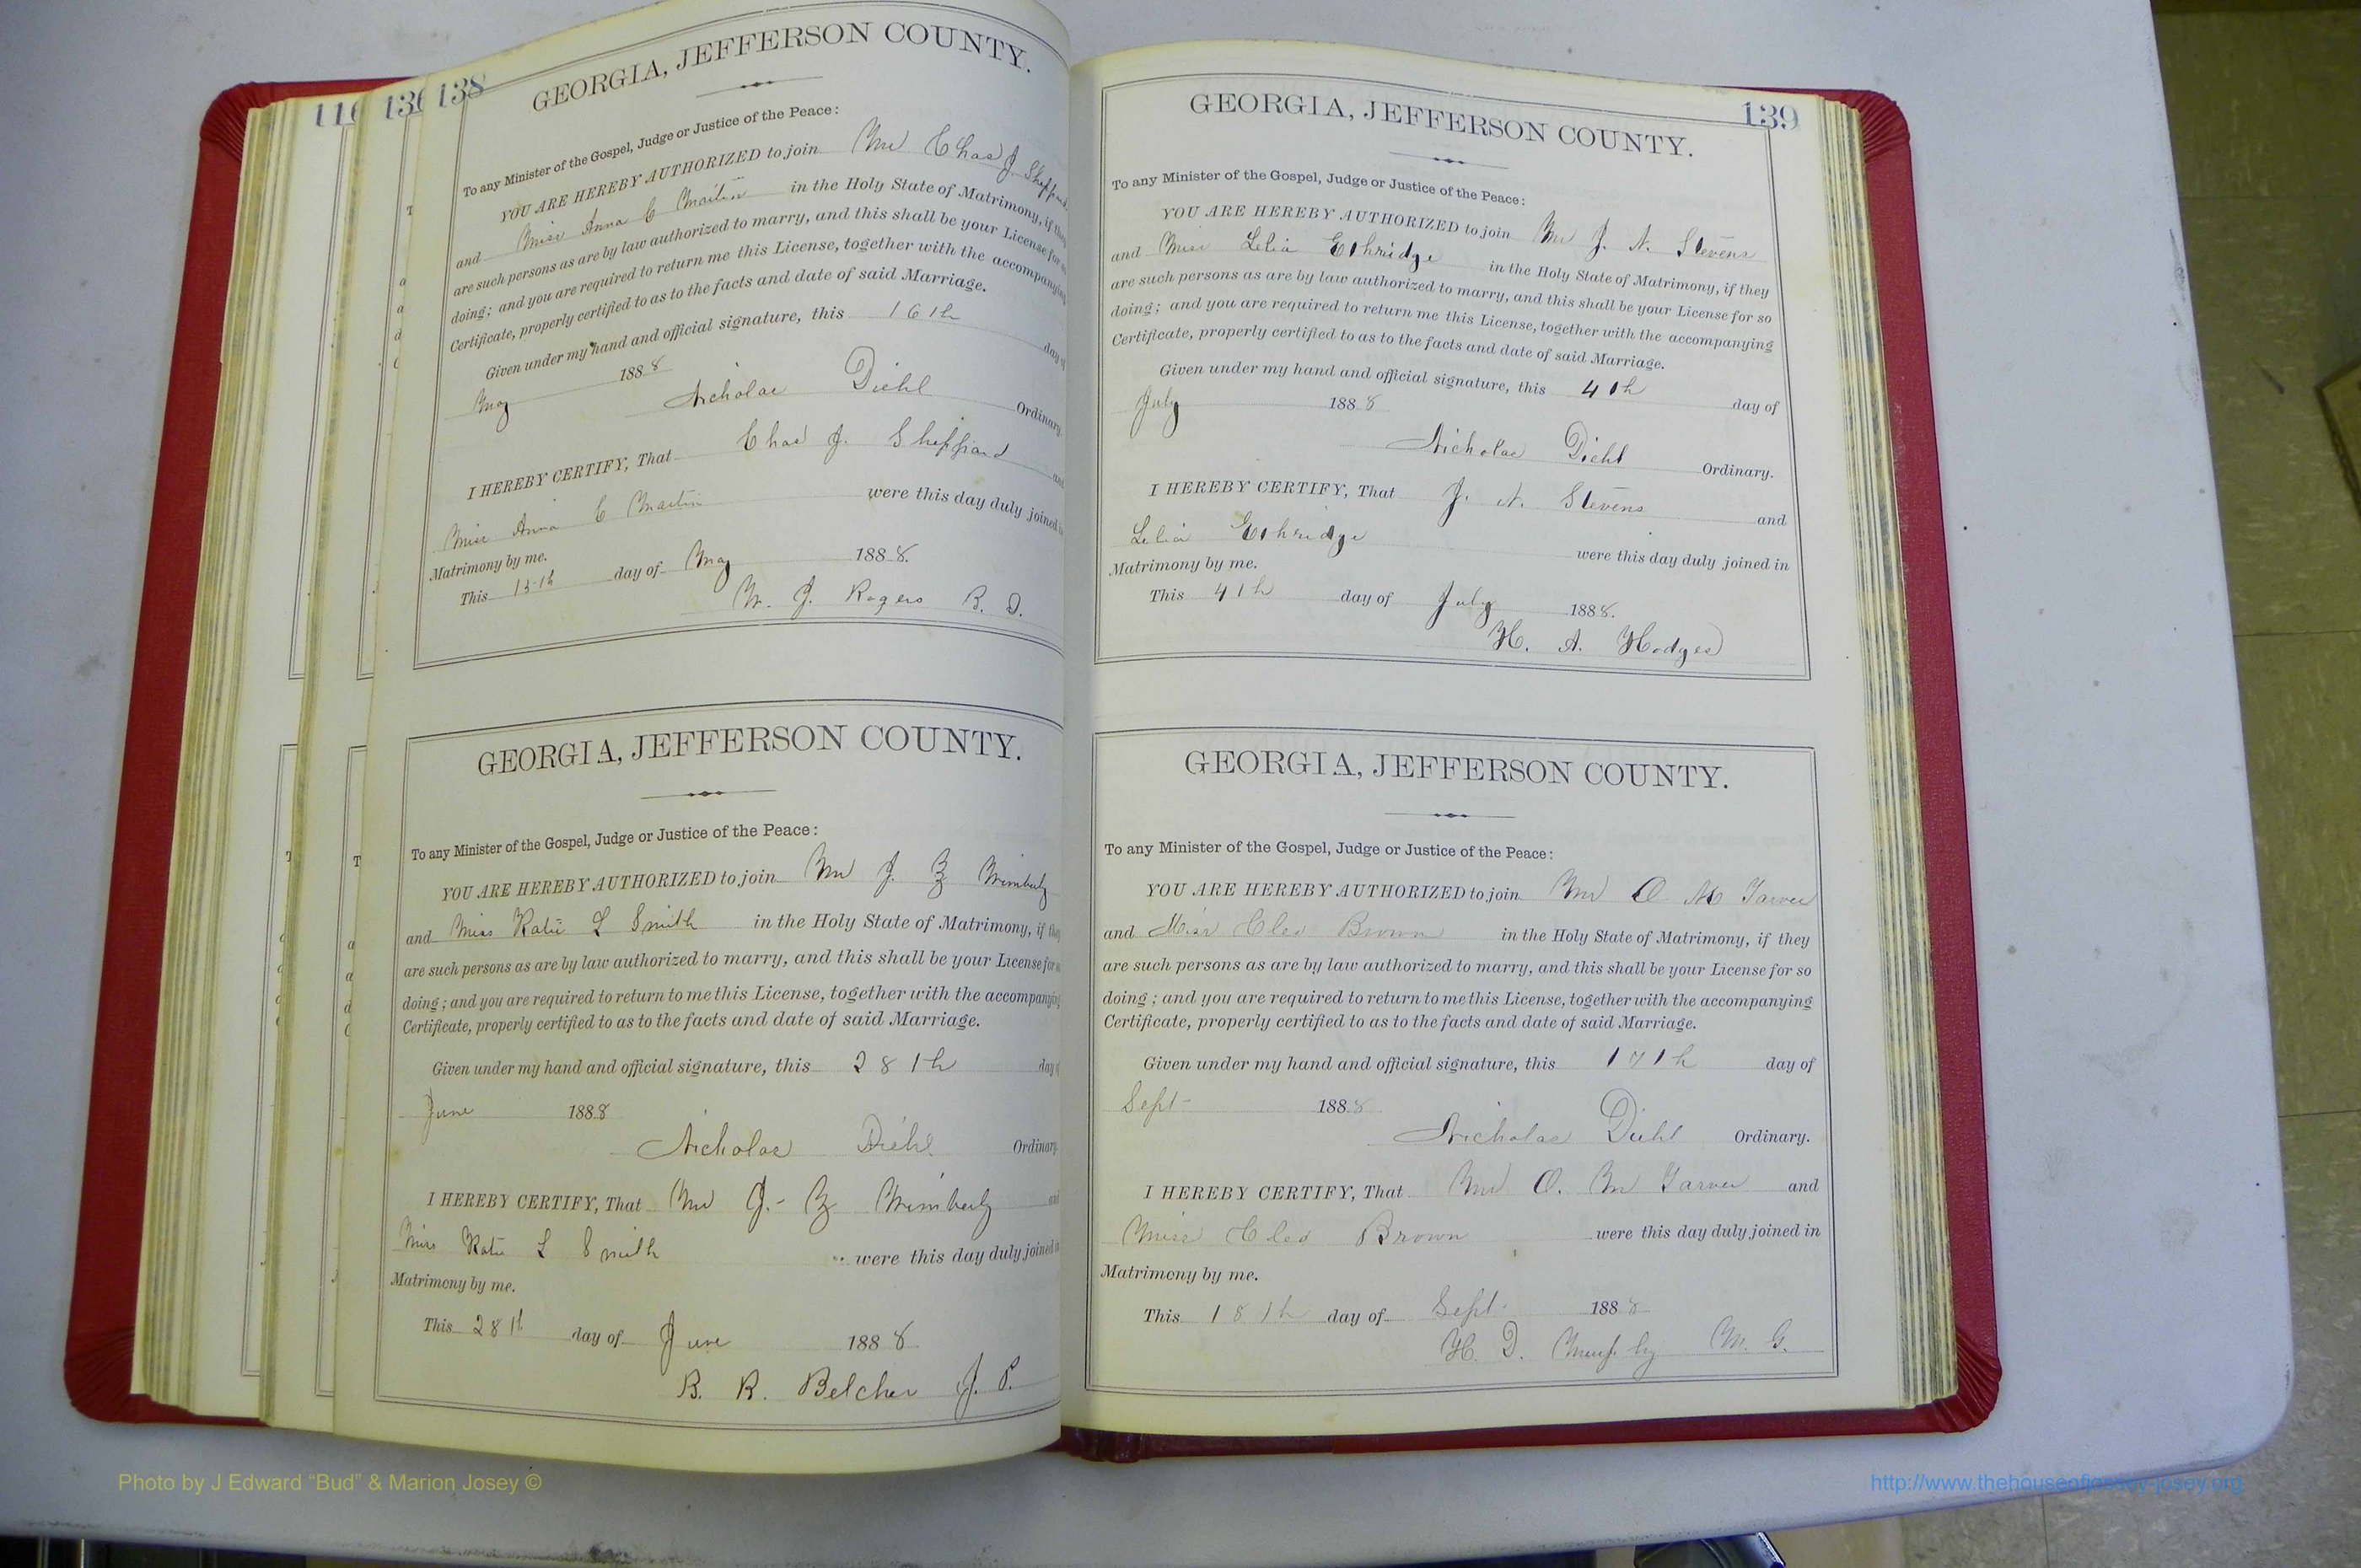 116
136
138
GEORGIA, JEFFERSON COUNTY.
To any Minister of the Gospel, Judge or Justice of the Peace:
YOU ARE HEREBY AUTHORIZED to join Mr Chas J. Sheppard
and Miss Anna C Martin in the Holy State of Matrimony, if they
are such persons as are by law authorized to marry, and this shall be your License for so
doing; and you are required to return me this License, together with the accompanying
Certificate, properly certified to as to the facts and date of said Marriage.
Given under my hand and official signature, this 16th day of
May 1888
Nicholas Diehl Ordinary.
I HEREBY CERTIFY, That Chas J. Sheppard and
Miss Anna C Martin were this day duly joined in
Matrimony by me.
This 15th day of May 1888.
W. J. Rogers
GEORGIA, JEFFERSON COUNTY.
To any Minister of the Gospel, Judge or Justice of the Peace:
YOU ARE HEREBY AUTHORIZED to join Mr J. Z Wimberly
and Miss Katie L Smith in the Holy State of Matrimony, if they
are such persons as are by law authorized to marry, and this shall be your License for so
doing; and you are required to return to me this License, together with the accompanying
Certificate, properly certified to as to the facts and date of said Marriage.
Given under my hand and official signature, this 28th day of
June 1888
Nicholas Diehl Ordinary.
I HEREBY CERTIFY, That Mr J. Z Wimberly and
Miss Katie L Smith were this day duly joined in
Matrimony by me.
This 28th day of June 1888
B. R. Belcher J. P.
139
GEORGIA, JEFFERSON COUNTY.
To any Minister of the Gospel, Judge or Justice of the Peace:
YOU ARE HEREBY AUTHORIZED to join Mr J. N. Stevens
and Miss Lelia Ethridge in the Holy State of Matrimony, if they
are such persons as are by law authorized to marry, and this shall be your License for so
doing; and you are required to return me this License, together with the accompanying
Certificate, properly certified to as to the facts and date of said Marriage.
Given under my hand and official signature, this 4th day of
July 1888
Nicholas Diehl Ordinary.
I HEREBY CERTIFY, That J. N. Stevens and
Lelia Ethridge were this day duly joined in
Matrimony by me.
This 4th day of July 1888.
H. A. Hodges
GEORGIA, JEFFERSON COUNTY.
To any Minister of the Gospel, Judge or Justice of the Peace:
YOU ARE HEREBY AUTHORIZED to join Mr O M Tarver
and Miss Cleo Brown in the Holy State of Matrimony, if they
are such persons as are by law authorized to marry, and this shall be your License for so
doing; and you are required to return to me this License, together with the accompanying
Certificate, properly certified to as to the facts and date of said Marriage.
Given under my hand and official signature, this 17th day of
Sept 1888
Nicholas Diehl Ordinary.
I HEREBY CERTIFY, That Mr O. M Tarver and
Miss Cleo Brown were this day duly joined in
Matrimony by me.
This 18th day of Sept. 1888
H. D. M. G.
Photo by J Edward “Bud” & Marion Josey ©
http://www.thehouseofjossey-josey.org